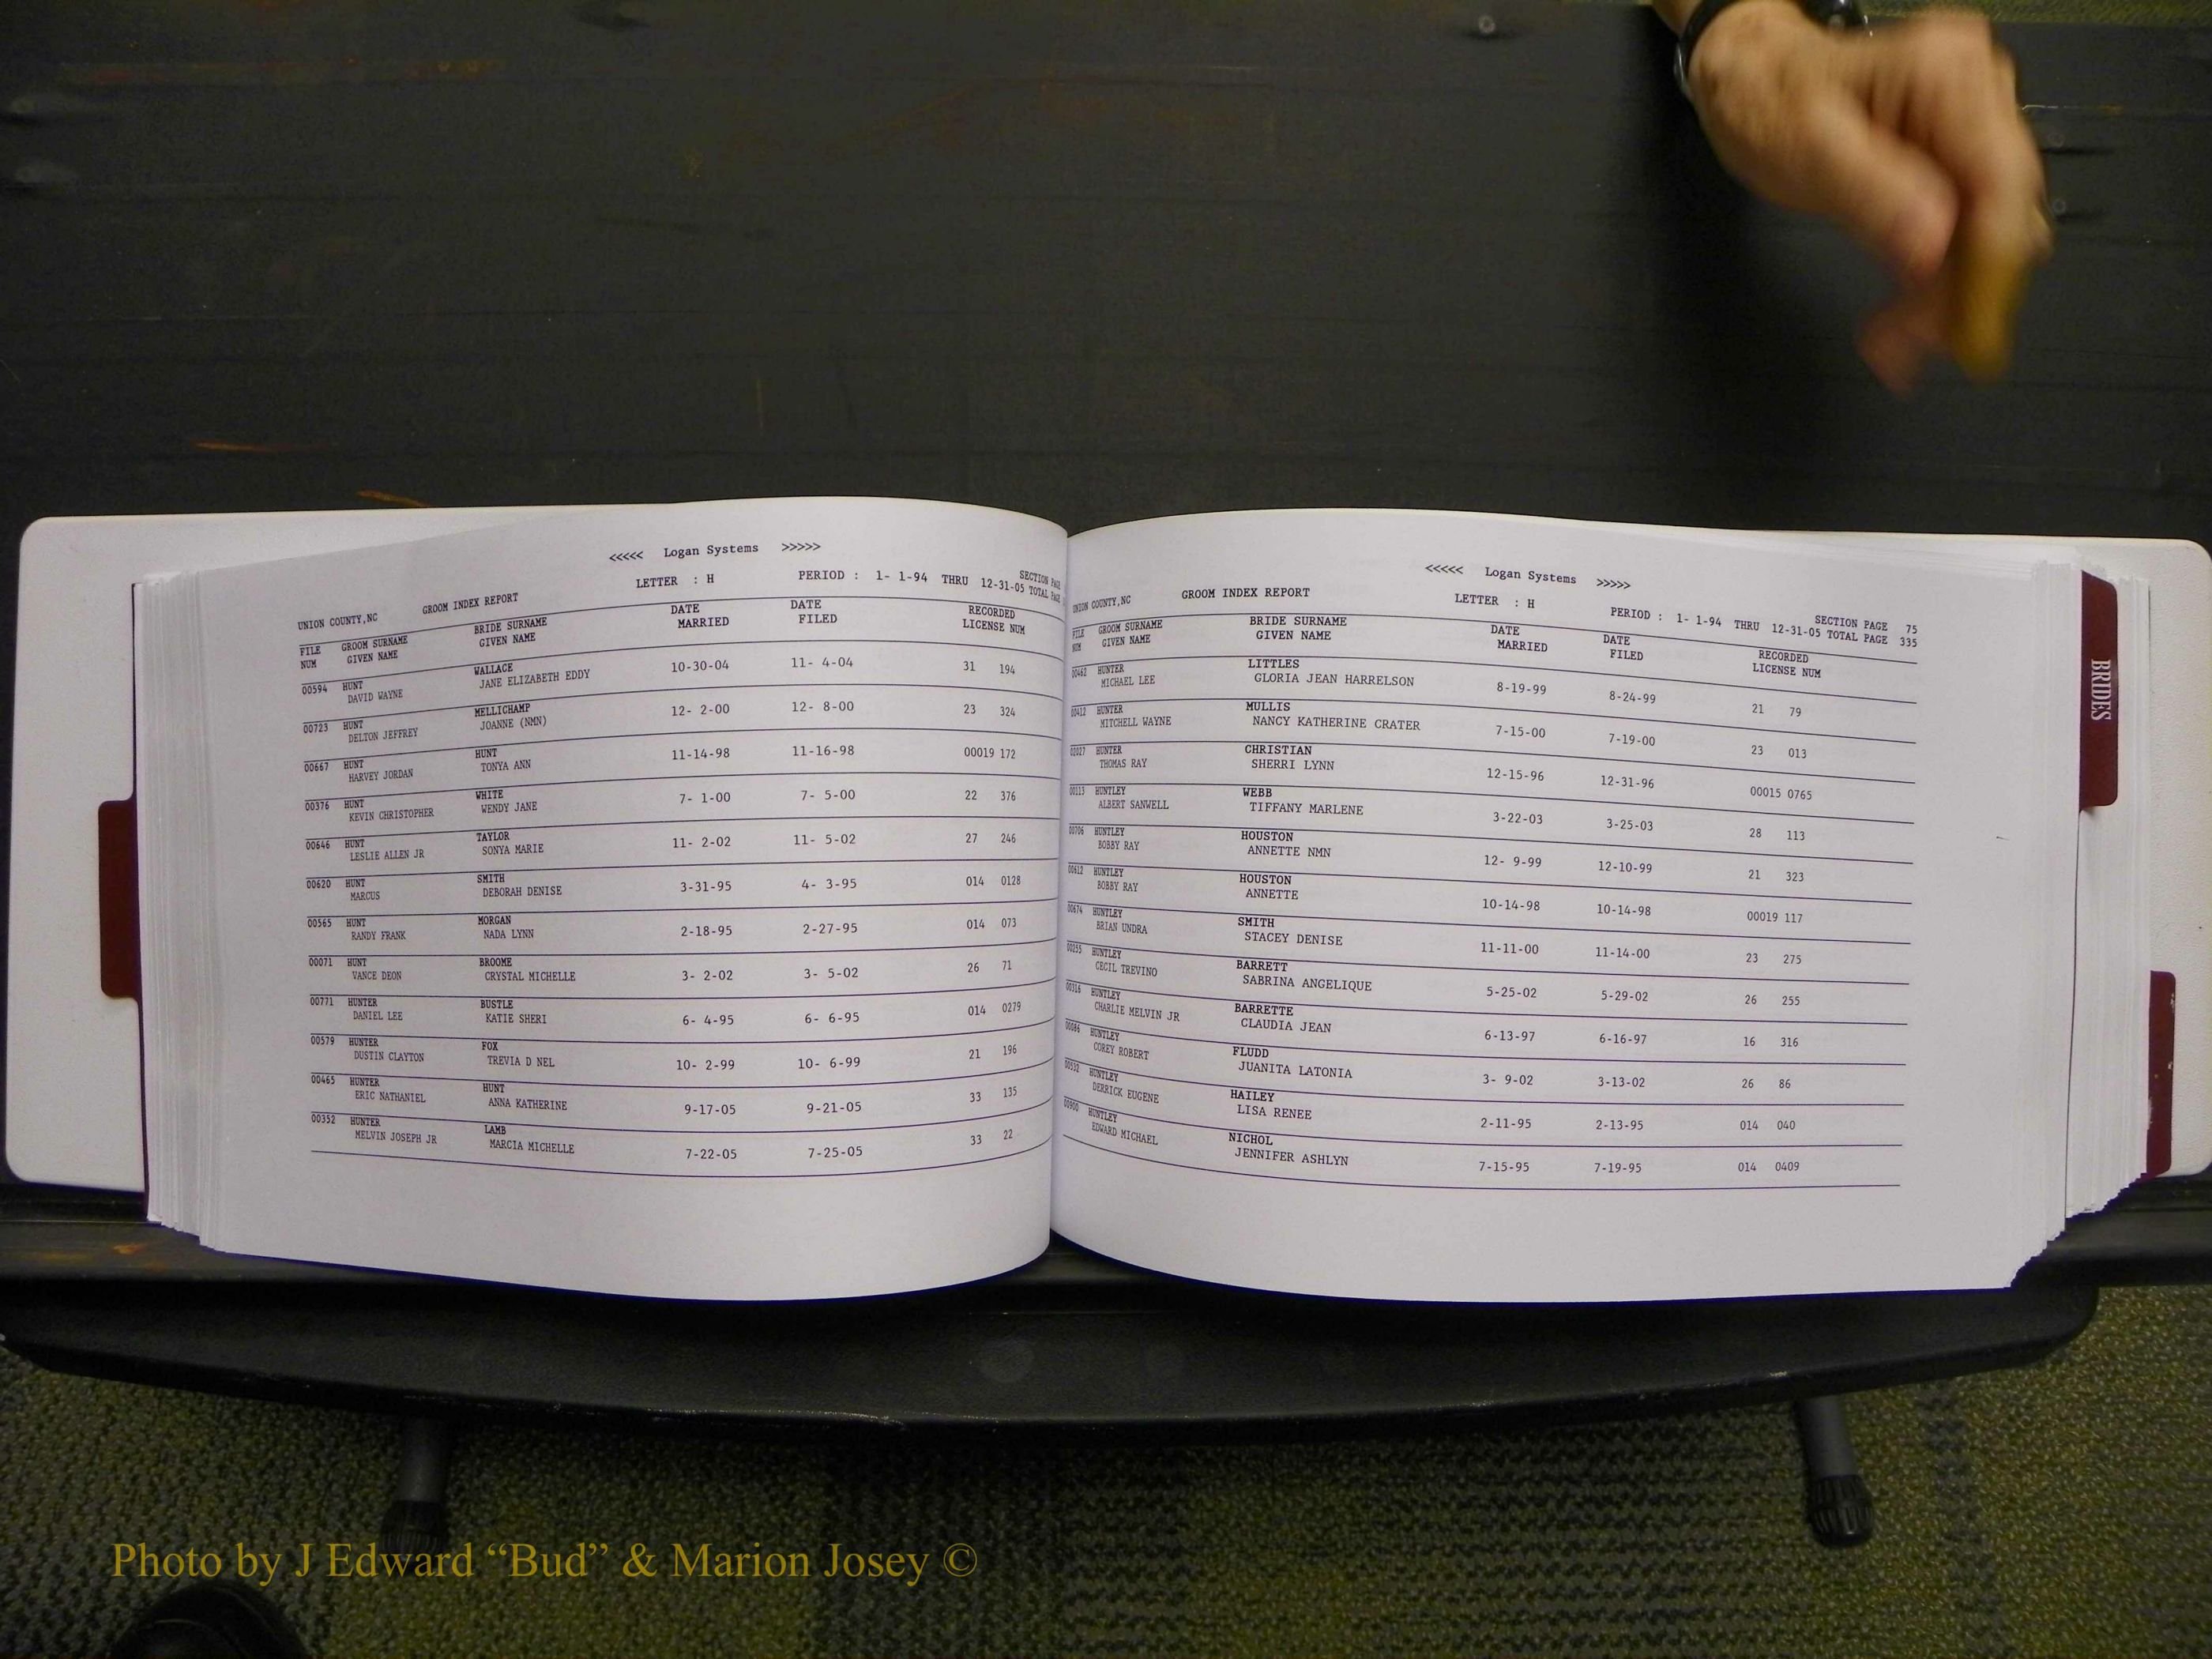 <<<<< Logan Systems >>>>>
UNION COUNTY,NC GROOM INDEX REPORT LETTER : H PERIOD : 1- 1-94 THRU 12-31-05 SECTION PAGE
TOTAL PAGE
FILE GROOM SURNAME BRIDE SURNAME DATE DATE RECORDED
NUM GIVEN NAME GIVEN NAME MARRIED FILED LICENSE NUM
00594 HUNT WALLACE 10-30-04 11- 4-04 31 194
DAVID WAYNE JANE ELIZABETH EDDY
00723 HUNT MELLICHAMP 12- 2-00 12- 8-00 23 324
DELTON JEFFREY JOANNE (NMN)
00667 HUNT HUNT 11-14-98 11-16-98 00019 172
HARVEY JORDAN TONYA ANN
00376 HUNT WHITE 7- 1-00 7- 5-00 22 376
KEVIN CHRISTOPHER WENDY JANE
00646 HUNT TAYLOR 11- 2-02 11- 5-02 27 246
LESLIE ALLEN JR SONYA MARIE
00620 HUNT SMITH 3-31-95 4- 3-95 014 0128
MARCUS DEBORAH DENISE
00565 HUNT MORGAN 2-18-95 2-27-95 014 073
RANDY FRANK NADA LYNN
00071 HUNT BROOME 3- 2-02 3- 5-02 26 71
VANCE DEON CRYSTAL MICHELLE
00771 HUNTER BUSTLE 6- 4-95 6- 6-95 014 0279
DANIEL LEE KATIE SHERI
00579 HUNTER FOX 10- 2-99 10- 6-99 21 196
DUSTIN CLAYTON TREVIA D NEL
00465 HUNTER HUNT 9-17-05 9-21-05 33 135
ERIC NATHANIEL ANNA KATHERINE
00352 HUNTER LAMB 7-22-05 7-25-05 33 22
MELVIN JOSEPH JR MARCIA MICHELLE
<<<<< Logan Systems >>>>>
UNION COUNTY,NC GROOM INDEX REPORT LETTER : H PERIOD : 1- 1-94 THRU 12-31-05 SECTION PAGE 75
TOTAL PAGE 335
FILE GROOM SURNAME BRIDE SURNAME DATE DATE RECORDED
NUM GIVEN NAME GIVEN NAME MARRIED FILED LICENSE NUM
00462 HUNTER LITTLES 8-19-99 8-24-99 21 79
MICHAEL LEE GLORIA JEAN HARRELSON
00412 HUNTER MULLIS 7-15-00 7-19-00 23 013
MITCHELL WAYNE NANCY KATHERINE CRATER
HUNTER CHRISTIAN 12-15-96 12-31-96 00015 0765
THOMAS RAY SHERRI LYNN
00113 HUNTLEY WEBB 3-22-03 3-25-03 28 113
ALBERT SANWELL TIFFANY MARLENE
00706 HUNTLEY HOUSTON 12- 9-99 12-10-99 21 323
BOBBY RAY ANNETTE NMN
00612 HUNTLEY HOUSTON 10-14-98 10-14-98 00019 117
BOBBY RAY ANNETTE
00674 HUNTLEY SMITH 11-11-00 11-14-00 23 275
BRIAN UNDRA STACEY DENISE
00255 HUNTLEY BARRETT 5-25-02 5-29-02 26 255
CECIL TREVINO SABRINA ANGELIQUE
00316 HUNTLEY BARRETTE 6-13-97 6-16-97 16 316
CHARLIE MELVIN JR CLAUDIA JEAN
00086 HUNTLEY FLUDD 3- 9-02 3-13-02 26 86
COREY ROBERT JUANITA LATONIA
HUNTLEY HAILEY 2-11-95 2-13-95 014 040
DERRICK EUGENE LISA RENEE
00900 HUNTLEY NICHOL 7-15-95 7-19-95 014 0409
EDWARD MICHAEL JENNIFER ASHLYN
BRIDES
Photo by J Edward “Bud” & Marion Josey ©